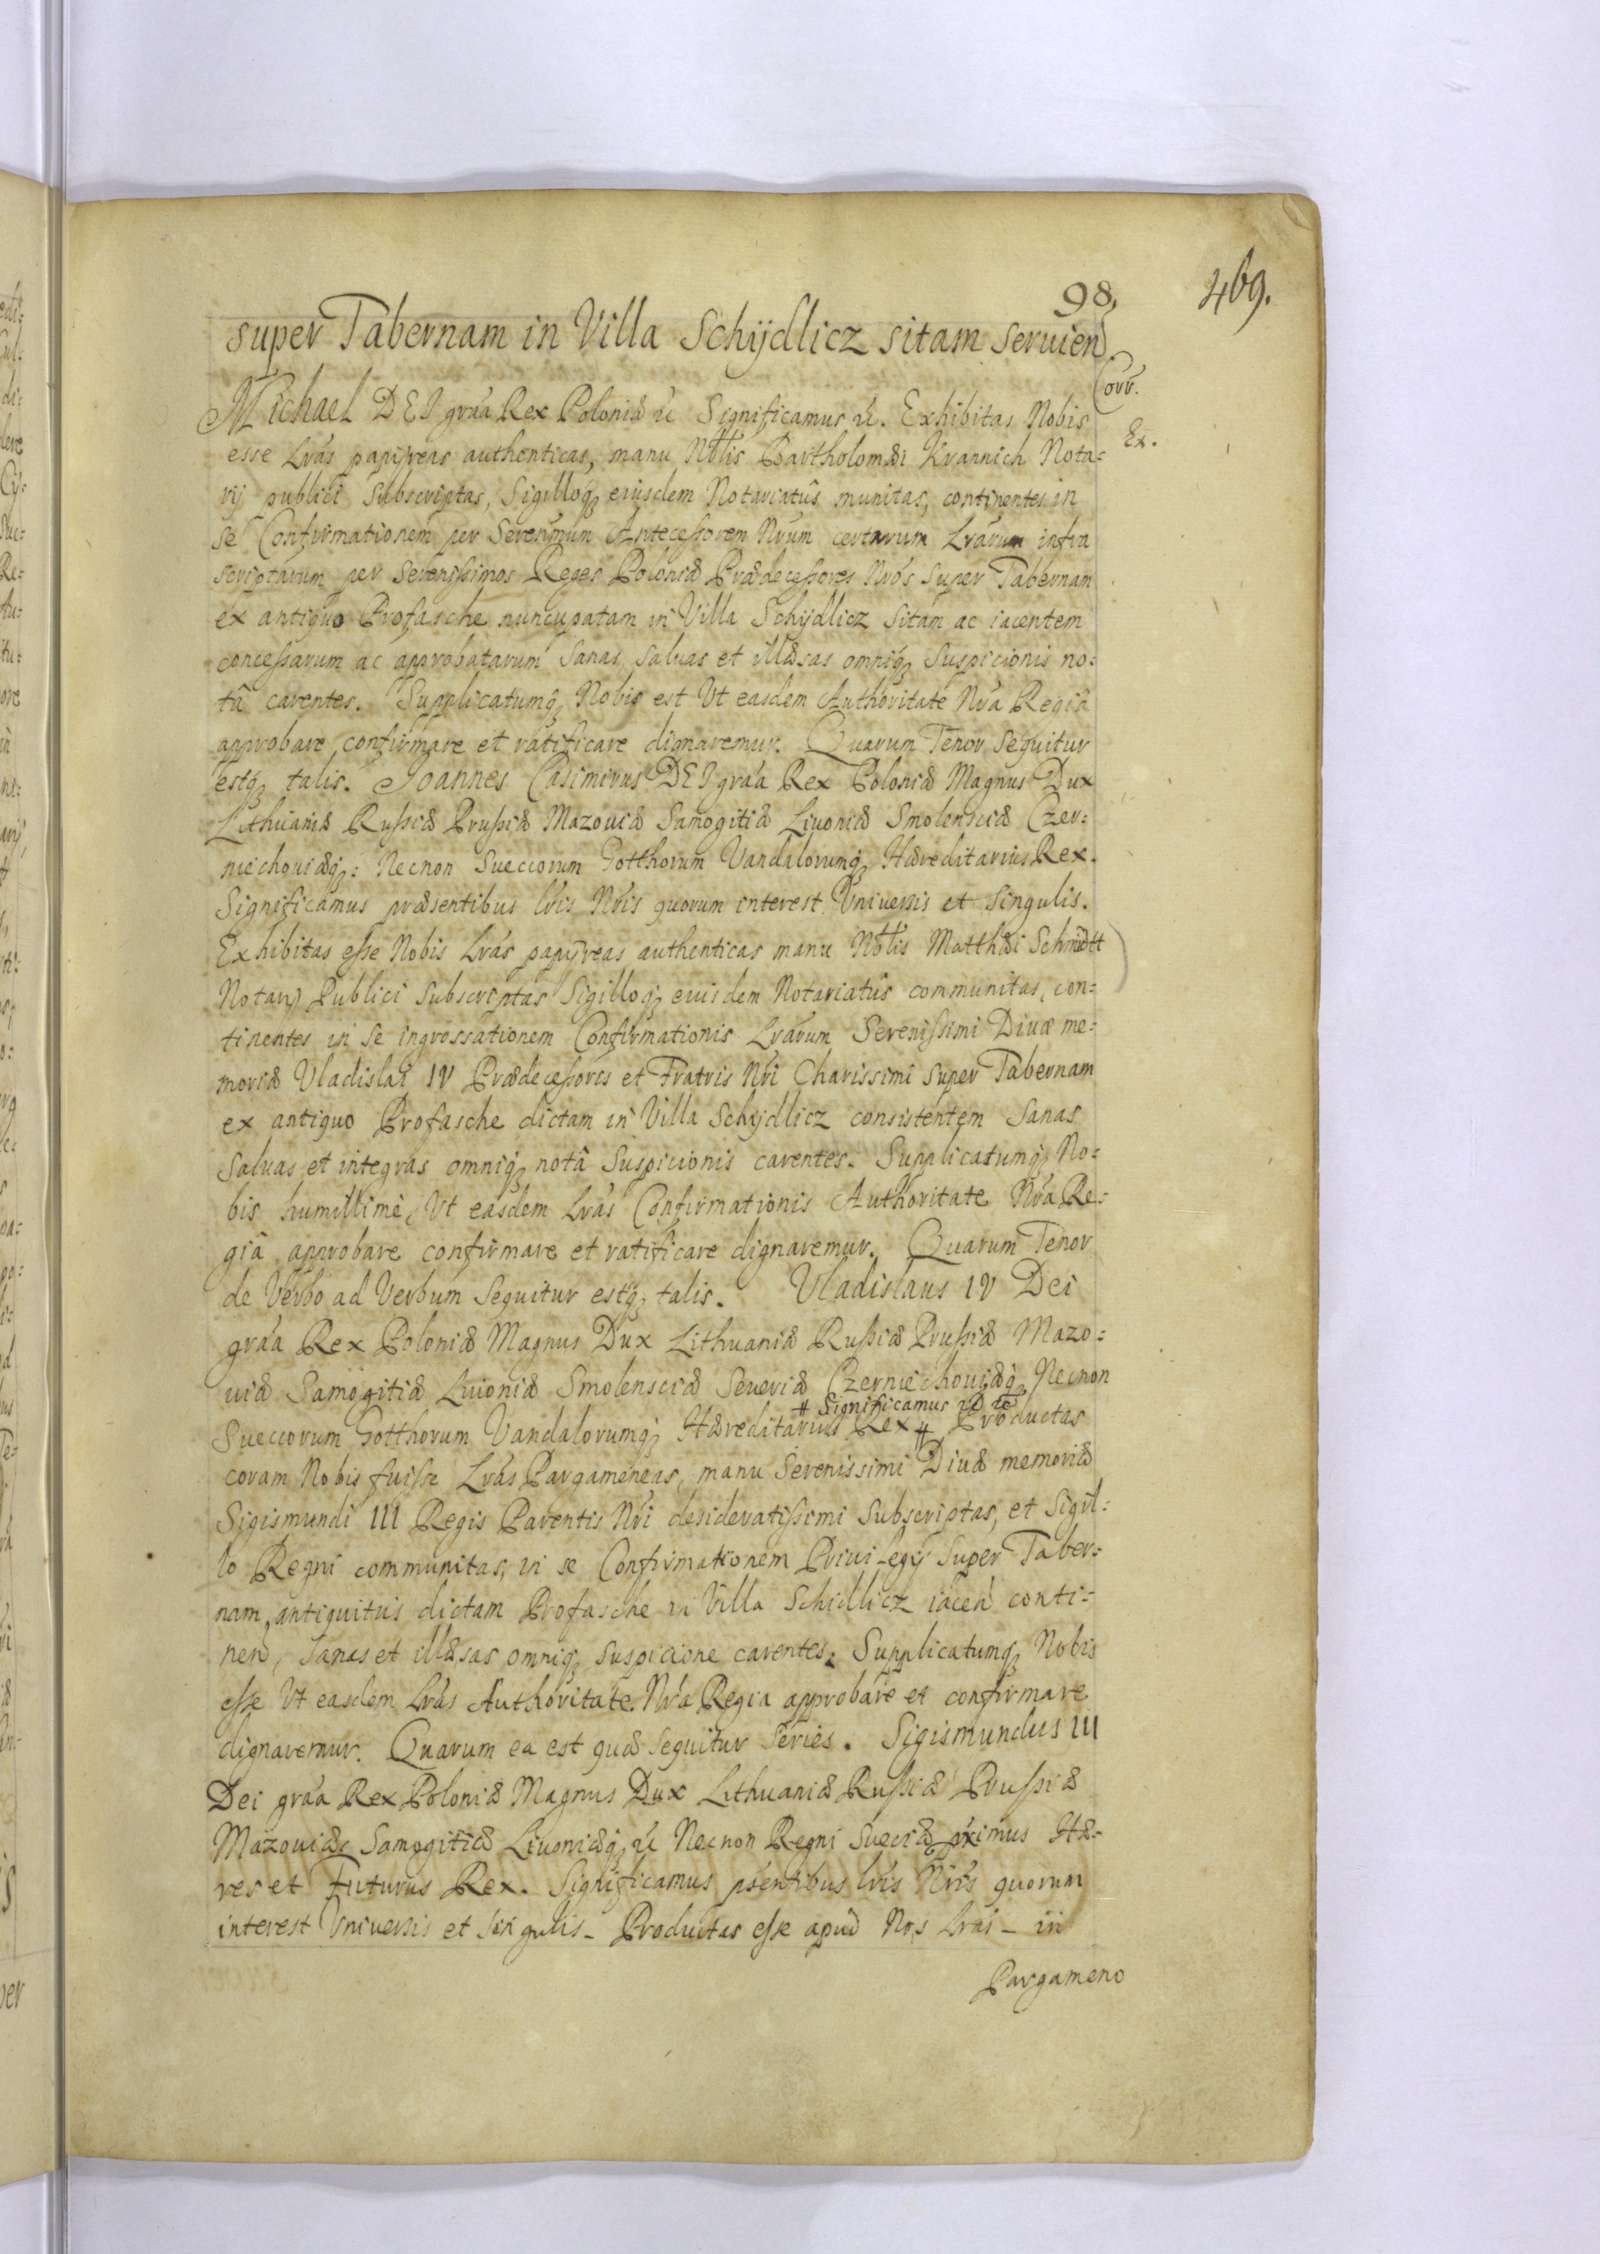 98.
469.
super Tabernam in Villa Schÿdlicz sitam seruien
Corr.
Michael DEI grãa Rex Poloniæ &c Significamus &c. Exhibitas Nobis
Ex.
esse Lrãs papÿreas authenticas, manu Nblis Bartholomæi Krannich Nota-
rij publici subscriptas, Sigilloq3 eiusdem Notariatûs munitas, continentes in
se Confirmationem per Serenmum Antecessorem Nrum certarum Lrarum infra
scriptarum per Serenissimos Reges Poloniæ Prædecessores Nros super Tabernam
ex antiquo Profasche nuncupatam in Villa Schÿdlicz sitam ac iacentem
concessarum ac approbatarum sanas saluas et illæsas omniq3 suspicionis no-
tâ carentes. Supplicatumq3 Nobis est Vt easdem Authoritate Nrã Regiâ
approbare, confirmare et ratificare dignaremur. Quarum Tenor sequitur
estq3 talis. Joannes Casimirus DEI grãa Rex Poloniæ Magnus Dux
Lithuaniæ Russiæ Prussiæ Mazouiæ Samogitiæ Liuoniæ Smolensciæ Czer-
niechouiæq3: Necnon Sueccorum Gotthorum Vandalorumq3 Hæreditarius Rex.
Significamus præsentibus lris Nris quorum interest Vniuersis et singulis.
Exhibitas esse Nobis Lrãs papÿreas authenticas manu Nblis Matthæi Schmidtt
Notarij Publici subscriptas Sigilloq3 eiusdem Notariatûs communitas, con-
tinentes in se ingrossationem Confirmationis Lrarum Serenissimi Diuæ me-
moriæ Vladislai IV Prædecessoris et Fratris Nri Charissimi super Tabernam
ex antiquo Profasche dictam in Villa Schÿdlicz consistentem sanas
saluas et integras omniq3 notâ suspicionis carentes. Supplicatumq3 No-
bis humillimè, Vt easdem Lrãs Confirmationis Authoritate Nrã Re-
giâ approbare confirmare et ratificare dignaremur. Quarum Tenor
de Verbo ad Verbum sequitur estq3 talis. Vladislaus IV Dei
grãa Rex Poloniæ Magnus Dux Lithuaniæ Russiæ Prussiæ Mazo-
uiæ Samogitiæ Liuoniæ Smolensciæ Seueriæ Czerniechouiæq3 Necnon
# Significamus
Sueccorum Gotthorum Vandalorumq3 Hæreditarius Rex # Productas
coram Nobis fuisse Lrãs Pargameneas, manu Serenissimi Diuæ memoriæ
Sigismundi III Regis Parentis Nri desideratissimi subscriptas, et Sigil-
lo Regni communitas, in se Confirmationem Priuilegij super Taber-
nam antiquitus dictam Profasche in Villa Schidlicz iacen conti-
nen, sanas et illæsas omniq3 suspicione carentes. Supplicatumq3 Nobis
esse Vt easdem Lrãs Authoritate Nrã Regia approbare et confirmare
dignaremur. Quarum ea est quæ sequitur series. Sigismundus III
Dei grãa Rex Poloniæ Magnus Dux Lithuaniæ Russiæ Prussiæ
Mazouiæ Samogitiæ Liuoniæq3 &c Necnon Regni Sueciæ pximus Hæ-
res et Futurus Rex. Significamus pñentibus lris Nris quorum
interest Vniuersis et singulis. Productas esse apud Nos Lrãs in
Pargameno